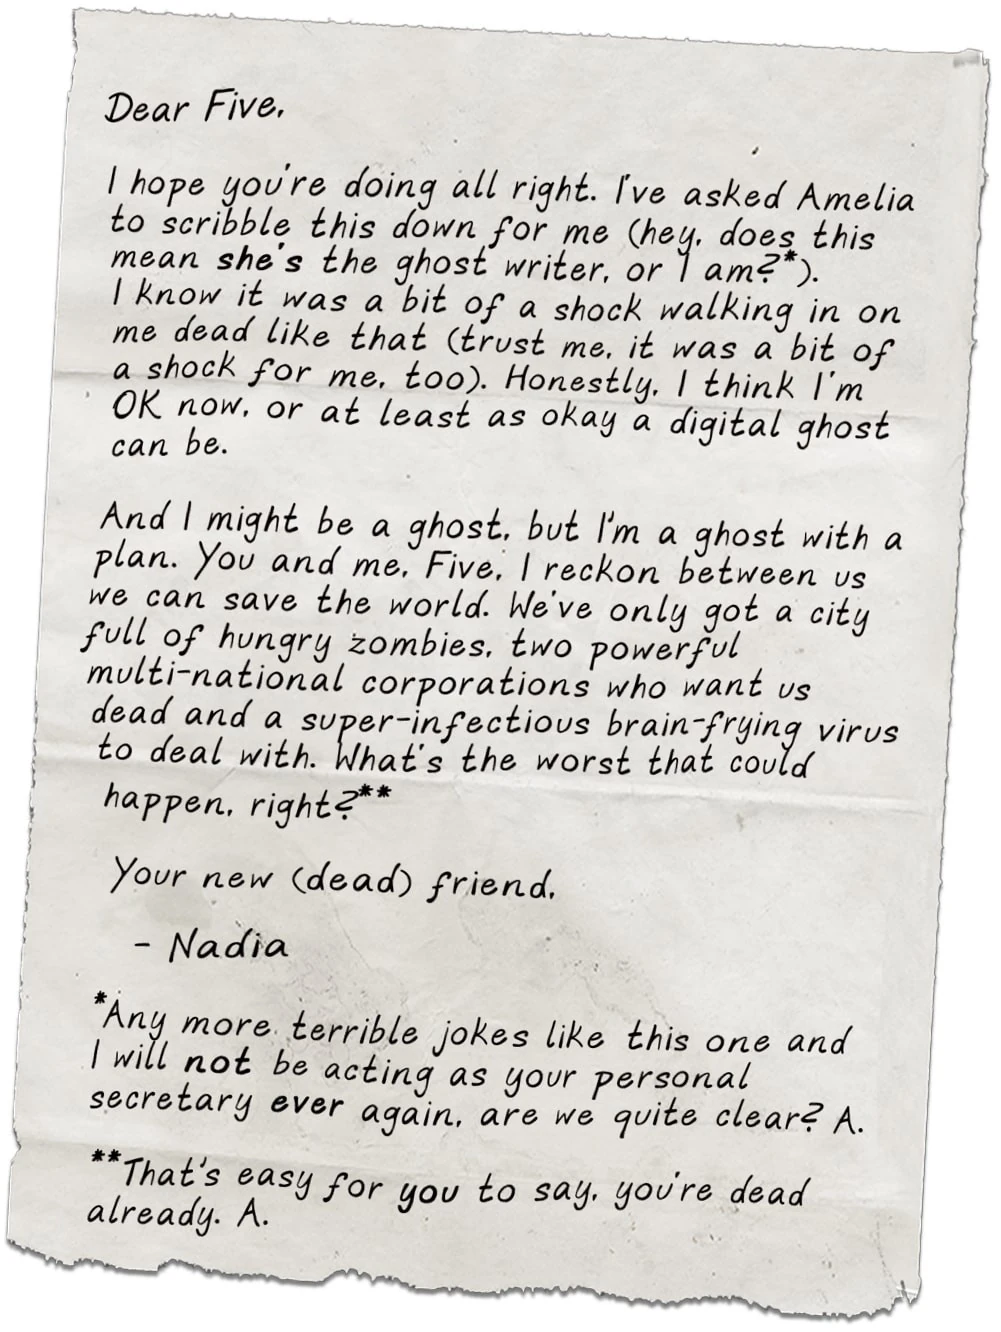 Dear Five,
I hope you're doing all right. I've asked Amelia
to scribble this down for me (hey, does this
mean she's the ghost writer, or I am?*).
I know it was a bit of a shock walking in on
me dead like that (trust me, it was a bit of
a shock for me, too). Honestly, I think I'm
OK now, or at least as okay a digital ghost
can be.
And I might be a ghost, but I'm a ghost with a
plan. You and me, Five, I reckon between us
we can save the world. We've only got a city
full of hungry zombies, two powerful
multi-national corporations who want us
dead and a super-infectious brain-frying virus
to deal with. What's the worst that could
happen, right?**
Your new (dead) friend,
- Nadia
*Any more terrible jokes like this one and
I will not be acting as your personal
secretary ever again, are we quite clear? A.
**That's easy for you to say, you're dead
already. A.